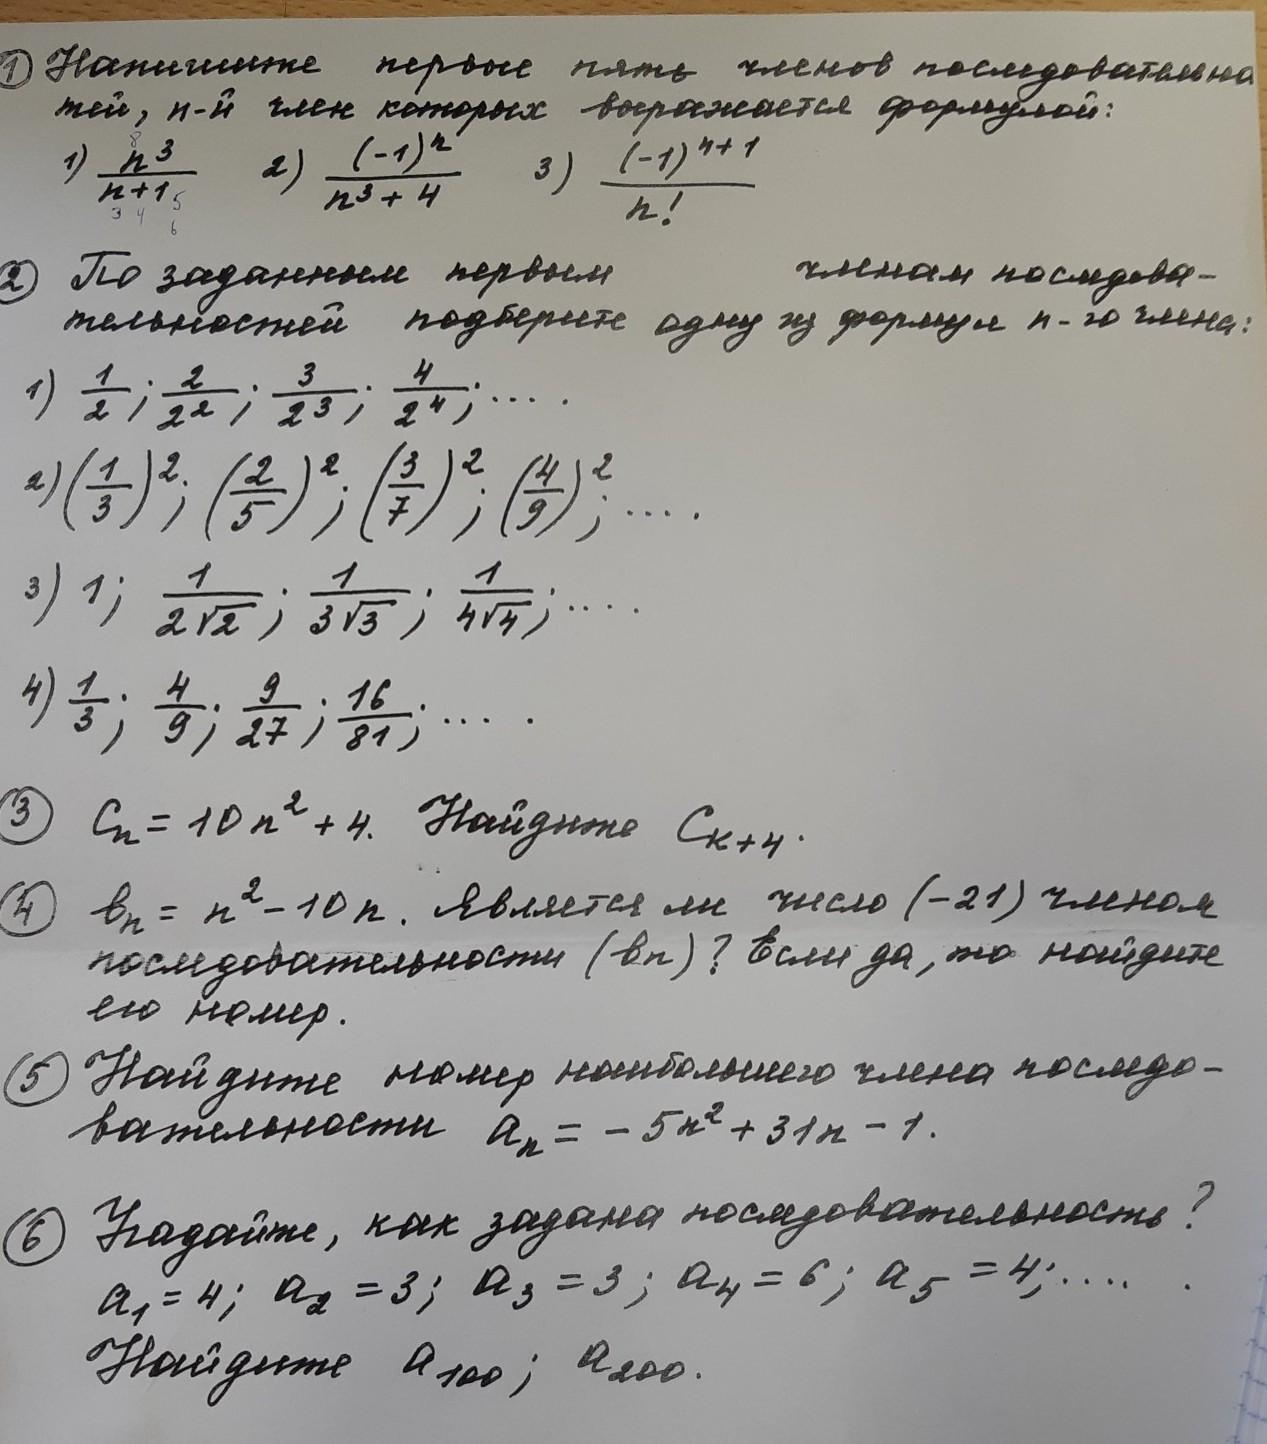 ① Напишите первые пять членов последовательна
тей, n-й член которых выражается формулой:
1) n³/(n+1) 2) (-1)ⁿ/(n³+4) 3) (-1)ⁿ⁺¹/n!
8 3 4 5 6
② По заданным первым членам последова-
тельностей подберите одну из формул n-го члена:
1) 1/2; 2/2²; 3/2³; 4/2⁴; ....
2) (1/3)²; (2/5)²; (3/7)²; (4/9)²; ....
3) 1; 1/(2√2); 1/(3√3); 1/(4√4); ....
4) 1/3; 4/9; 9/27; 16/81; ....
③ Cₙ = 10n² + 4. Найдите Cₖ₊₄.
④ вₙ = n² - 10n. Является ли число (-21) членом
последовательности (вₙ)? Если да, то найдите
его номер.
⑤ Найдите номер наибольшего члена последо-
вательности aₙ = -5n² + 31n - 1.
⑥ Угадайте, как задана последовательность?
a₁ = 4; a₂ = 3; a₃ = 3; a₄ = 6; a₅ = 4; .... .
Найдите a₁₀₀; a₂₀₀.